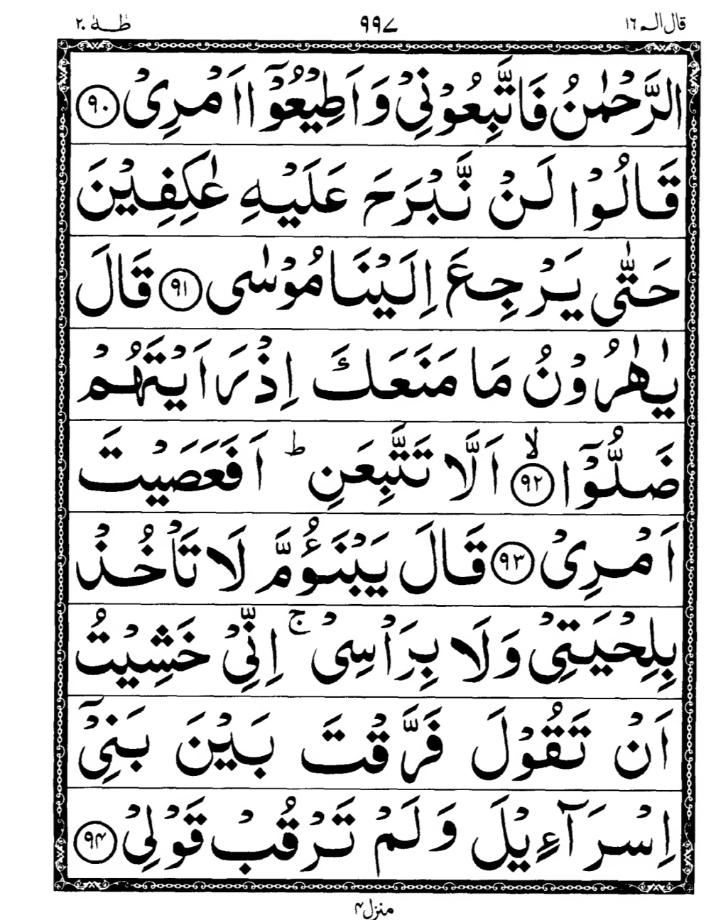 قال الم ١٦ ٩٩٧ طٰهٰ ٢٠
الرَّحْمٰنُ فَاتَّبِعُوْنِىْ وَاَطِيْعُوْٓا اَمْرِىْ ﴿٩٠﴾
قَالُوْا لَنْ نَّبْرَحَ عَلَيْهِ عٰكِفِيْنَ
حَتّٰى يَرْجِعَ اِلَيْنَا مُوْسٰى ﴿٩١﴾ قَالَ
يٰهٰرُوْنُ مَا مَنَعَكَ اِذْ رَاَيْتَهُمْ
ضَلُّوْٓا ۙ﴿٩٢﴾ اَلَّا تَتَّبِعَنِ ؕ اَفَعَصَيْتَ
اَمْرِىْ ﴿٩٣﴾ قَالَ يَبْنَؤُمَّ لَا تَاْخُذْ
بِلِحْيَتِىْ وَلَا بِرَاْسِىْ ۚ اِنِّىْ خَشِيْتُ
اَنْ تَقُوْلَ فَرَّقْتَ بَيْنَ بَنِىْٓ
اِسْرَآءِيْلَ وَلَمْ تَرْقُبْ قَوْلِىْ ﴿٩٤﴾
منزل ٤